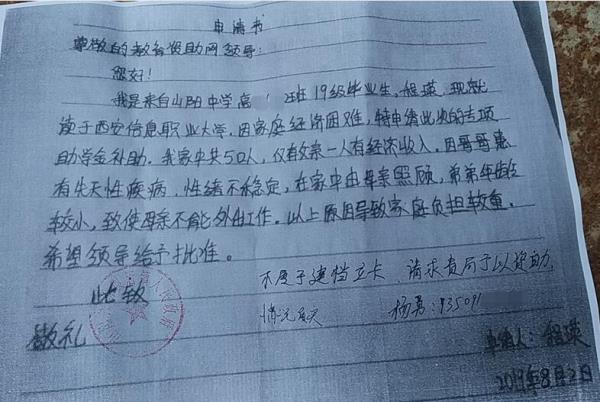 申请书
尊敬的教育资助网领导：
您好！
我是来自山阳中学高 班19级毕业生，程瑛，现就
读于西安信息职业大学，因家庭经济困难，特申请此次的专项
助学金补助，我家中共5口人，仅有父亲一人有经济收入，因哥哥患
有先天性疾病，性绪不稳定，在家中由母亲照顾，弟弟年龄
较小，致使母亲不能外出工作。以上原因导致家庭负担较重，
希望领导给予批准。
此致
不属于建档立卡，请求贵局予以资助，
敬礼
情况属实 杨勇：135091
申请人：程瑛
2019年8月2日